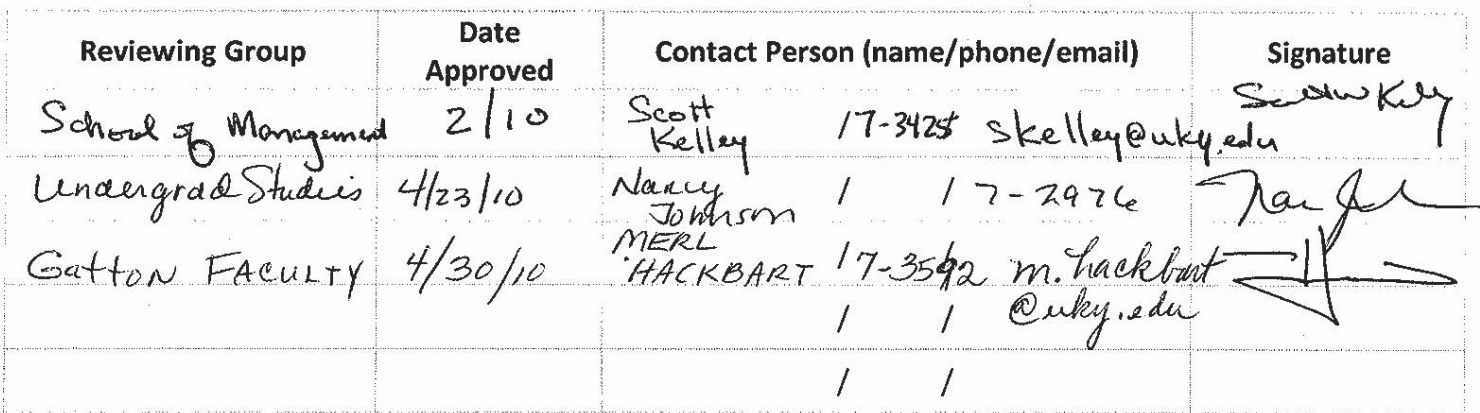 Reviewing Group Date Approved Contact Person (name/phone/email) Signature
School of Management 2/10 Scott Kelley / 7-3425 skelley@uky.edu
Undergrad Studies 4/23/10 Nancy Johnson / / 7-2976
Gatton FACULTY 4/30/10 MERL HACKBART / 7-3592 m.hackbart@uky.edu
/ /
/ /